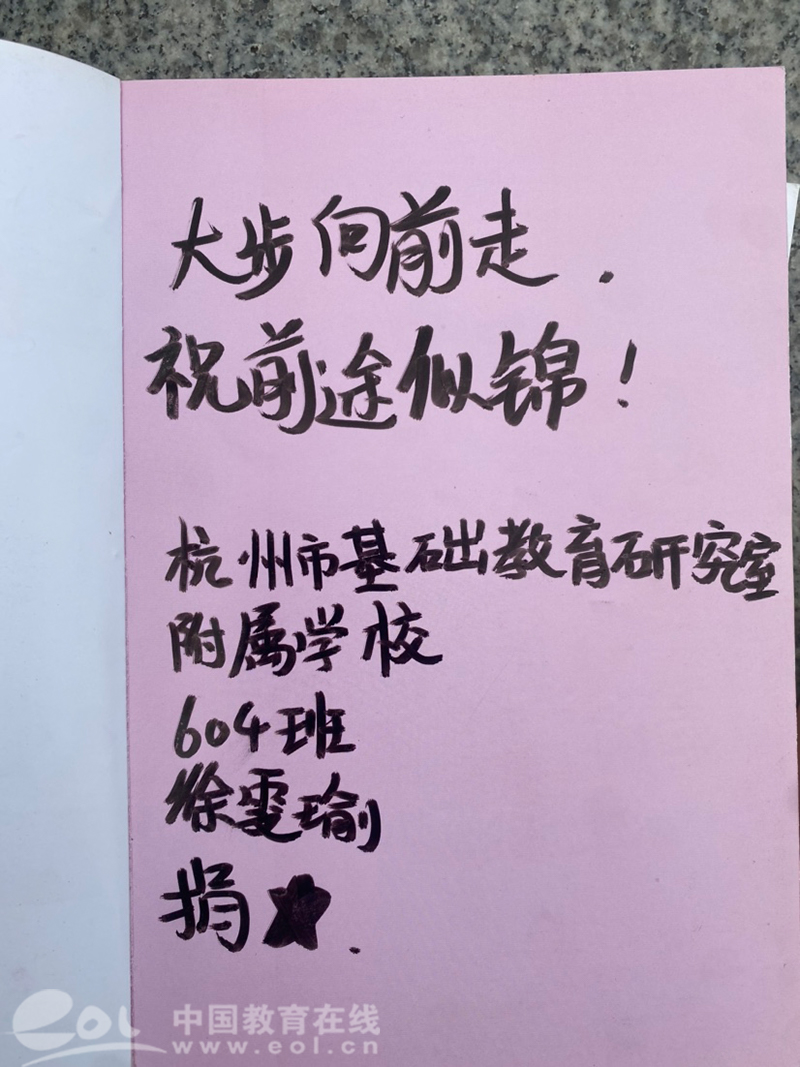 大步向前走.
祝前途似锦!
杭州市基础教育研究室
附属学校
604班
徐雯瑜
捐★.
eol 中国教育在线
www.eol.cn